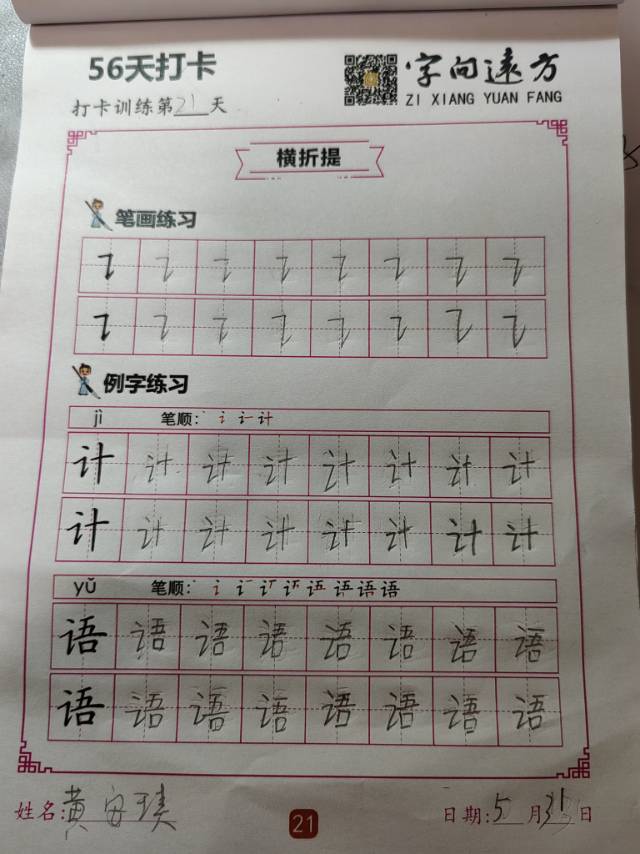 56天打卡
字向遠方
打卡训练第21天
ZI XIANG YUAN FANG
横折提
笔画练习
例字练习
jì 笔顺: 计
计 计 计 计 计 计 计 计
计 计 计 计 计 计 计 计
yǔ 笔顺: 语
语 语 语 语 语 语 语 语
语 语 语 语 语 语 语 语
姓名:黄
21
日期:5月31日